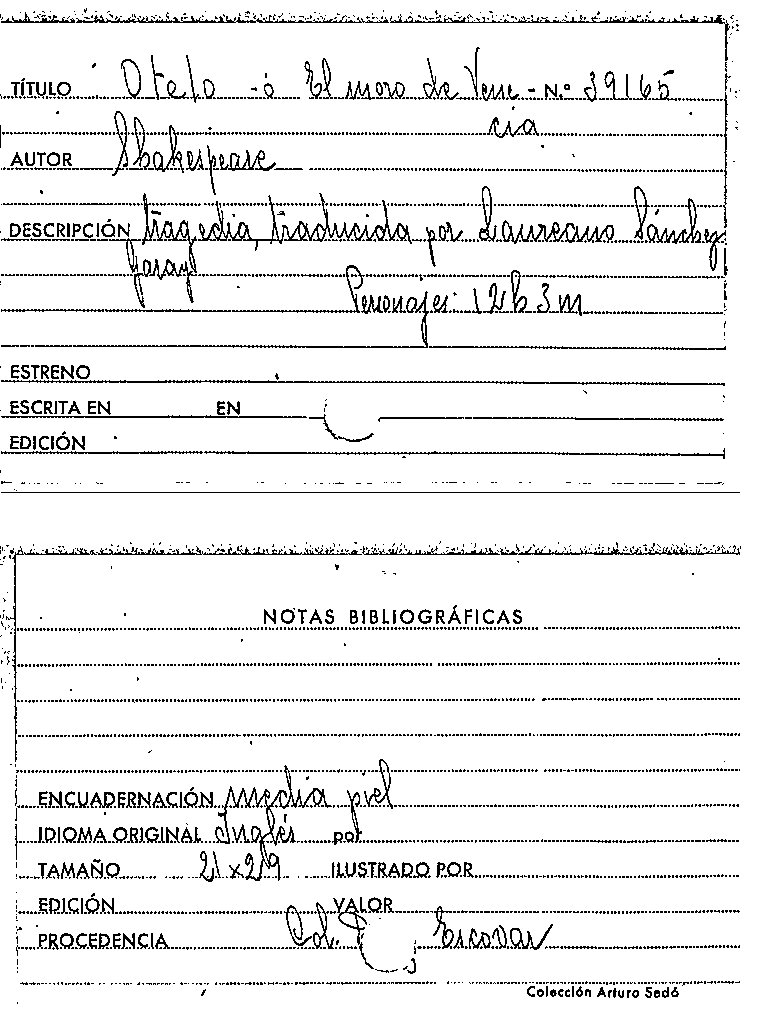 TÍTULO Otelo - ó El moro de Vene - N.º 39165
cia
AUTOR Shakespeare
DESCRIPCIÓN tragedia, traducida por Laureano Sánchez
Garay
Personajes: 12h 3m
ESTRENO
ESCRITA EN EN
EDICIÓN
NOTAS BIBLIOGRÁFICAS
ENCUADERNACIÓN media piel
IDIOMA ORIGINAL Inglés por
TAMAÑO 21 x 29 ILUSTRADO POR
EDICIÓN VALOR
PROCEDENCIA Col. Escovar
Colección Arturo Sedó